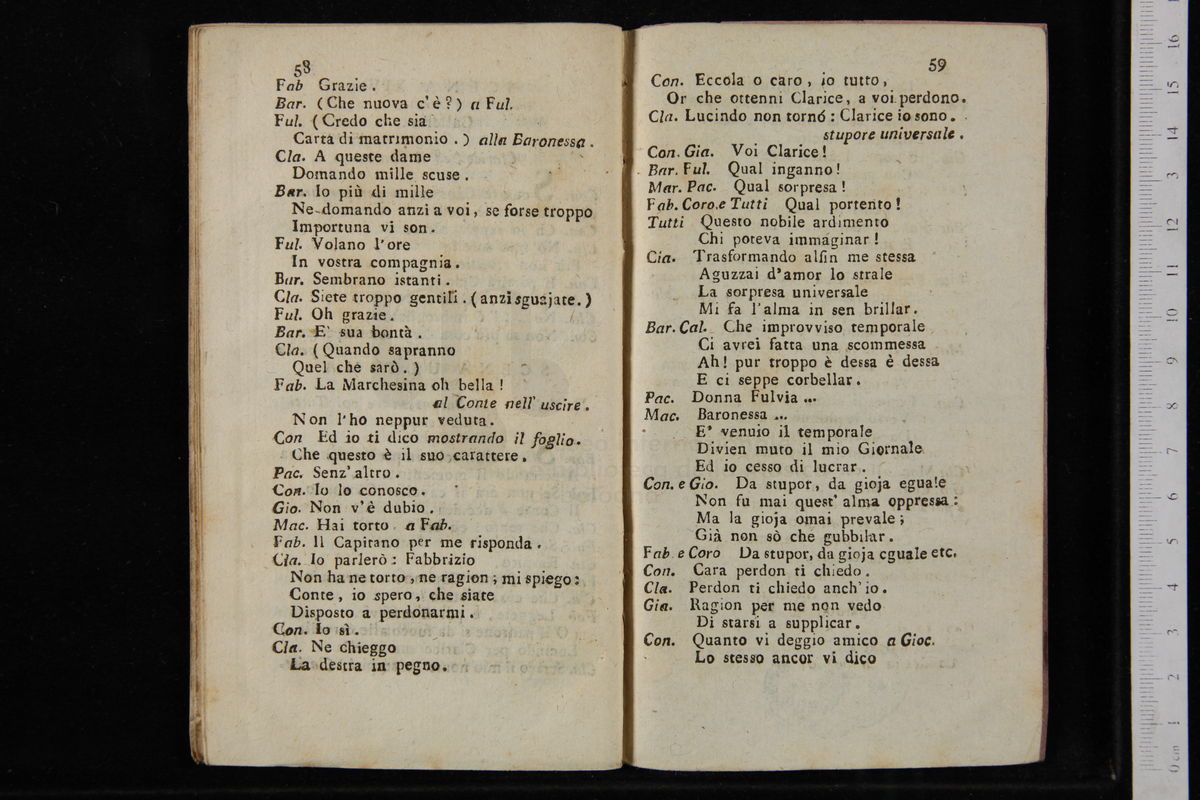 58
Fab Grazie.
Bar. (Che nuova c'è?) a Ful.
Ful. (Credo che sia
Carta di matrimonio.) alla Baronessa.
Cla. A queste dame
Domando mille scuse.
Bar. Io più di mille
Ne domando anzi a voi, se forse troppo
Importuna vi son.
Ful. Volano l'ore
In vostra compagnia.
Bar. Sembrano istanti.
Cla. Siete troppo gentili. (anzi sguajate.)
Ful. Oh grazie.
Bar. E' sua bontà.
Cla. (Quando sapranno
Quel che sarò.)
Fab. La Marchesina oh bella!
al Conte nell' uscire.
Non l'ho neppur veduta.
Con Ed io ti dico mostrando il foglio.
Che questo è il suo carattere.
Pac. Senz' altro.
Con. Io lo conosco.
Gio. Non v'è dubio.
Mac. Hai torto a Fab.
Fab. Il Capitano per me risponda.
Cla. Io parlerò: Fabbrizio
Non ha ne torto, ne ragion; mi spiego:
Conte, io spero, che siate
Disposto a perdonarmi.
Con. Io sì.
Cla. Ne chieggo
La destra in pegno.
59
Con. Eccola o caro, io tutto,
Or che ottenni Clarice, a voi perdono.
Cla. Lucindo non tornó: Clarice io sono.
stupore universale.
Con. Gia. Voi Clarice!
Bar. Ful. Qual inganno!
Mar. Pac. Qual sorpresa!
Fab. Coro.e Tutti Qual portento!
Tutti Questo nobile ardimento
Chi poteva immáginar!
Cia. Trasformando alfin me stessa
Aguzzai d'amor lo strale
La sorpresa universale
Mi fa l'alma in sen brillar.
Bar. Cal. Che improvviso temporale
Ci avrei fatta una scommessa
Ah! pur troppo è dessa è dessa
E ci seppe corbellar.
Pac. Donna Fulvia ...
Mac. Baronessa ...
E' venuio il temporale
Divien muto il mio Giornale
Ed io cesso di lucrar.
Con. e Gio. Da stupor, da gioja eguale
Non fu mai quest' alma oppressa:
Ma la gioja omai prevale;
Già non sò che gubbilar.
Fab e Coro Da stupor, da gioja eguale etc.
Con. Cara perdon ti chiedo.
Cla. Perdon ti chiedo anch' io.
Gia. Ragion per me non vedo
Di starsi a supplicar.
Con. Quanto vi deggio amico a Gioc.
Lo stesso ancor vi dico
0cm 1 2 3 4 5 6 7 8 9 10 11 12 13 14 15 16